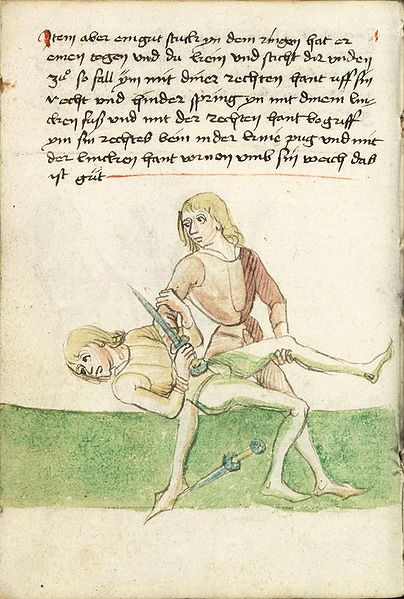 Item aber ein gut stuck yn dem ringen hat er
einen degen und du kein und sticht dir unden
zuͦ so fall ym mit diner rechten hant uff sin
recht und hinder spring yn mit dinem lin-
cken fuß und mit der rechten hant begriff
ym sin rechtes bein in der knie pug und mit
der lincken hant vornen umb sin weich das
ist gut